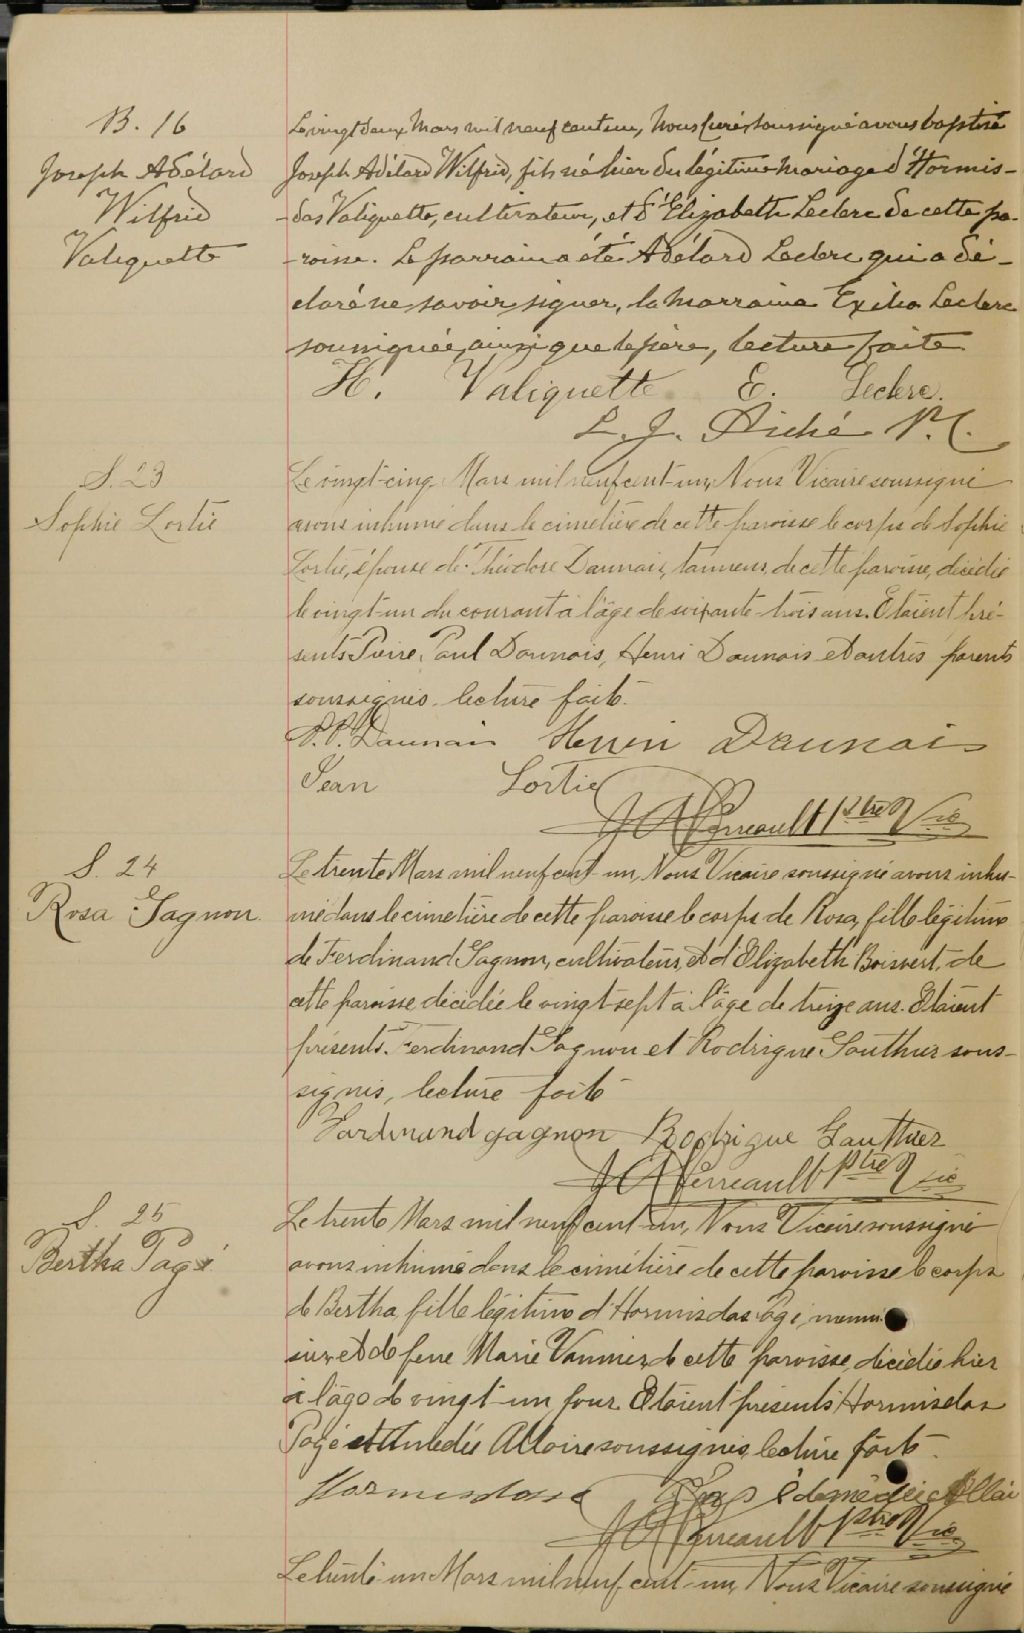 B. 16
Joseph Adélard
Wilfrid
Valiquette
Le vingt deux Mars mil neuf cent un, Nous Curé soussigné avons baptisé
Joseph Adélard Wilfrid, fils né hier du légitime mariage d'Hormis-
-das Valiquette, cultivateur, et d'Elizabeth Leclerc de cette pa-
-roisse. Le parrain a été Adélard Leclerc qui a dé-
claré ne savoir signer, la marraine Exilia Leclerc
soussignée, ainsi que le père, lecture faite
H. Valiquette E. Leclerc.
L. J. Piché
S. 23
Sophie Lortie
Le vingt-cinq Mars mil neuf cent-un, Nous Vicaire soussigné
avons inhumé dans le cimetière de cette paroisse le corps de Sophie
Lortie, épouse de Théodore Daunais, tanneur, de cette paroisse, décédée
le vingt-un du courant à l'âge de soixante-trois ans. Etaient pré-
sents Pierre Paul Daunais, Henri Daunais et autres parents
soussignés, lecture faite.
P. P. Daunais Henri Daunais
Jean Lortie
J A Perreault Ptre Vic
S. 24
Rosa Gagnon.
Le trente Mars mil neuf cent-un, Nous Vicaire soussigné avons inhu-
mé dans le cimetière de cette paroisse le corps de Rosa, fille légitime
de Ferdinand Gagnon, cultivateur, et d'Elizabeth Boisvert, de
cette paroisse décédée le vingt-sept à l'âge de treize ans. Etaient
présents Ferdinand Gagnon et Rodrigue Gauthier sous-
signés, lecture faite
Fardinand gagnon Rodrigue Gauthier
J A Perreault Ptre Vic
S. 25
Bertha Pagé
Le trente Mars mil neuf cent-un, Nous Vicaire soussigné
avons inhumé dans le cimétière de cette paroisse le corps
de Bertha, fille légitime d'Hormisdas Pagé, menui
sier, et de feue Marie Vannier de cette paroisse, décédée hier
à l'âge de vingt-un jour. Etaient présents Hormisdas
Pagé et Allaire soussignés, lecture faite.
Hormisdas Pagé Allai
J A Perreault Ptre Vic
Le trente-un Mars mil neuf cent-un, Nous Vicaire soussigné